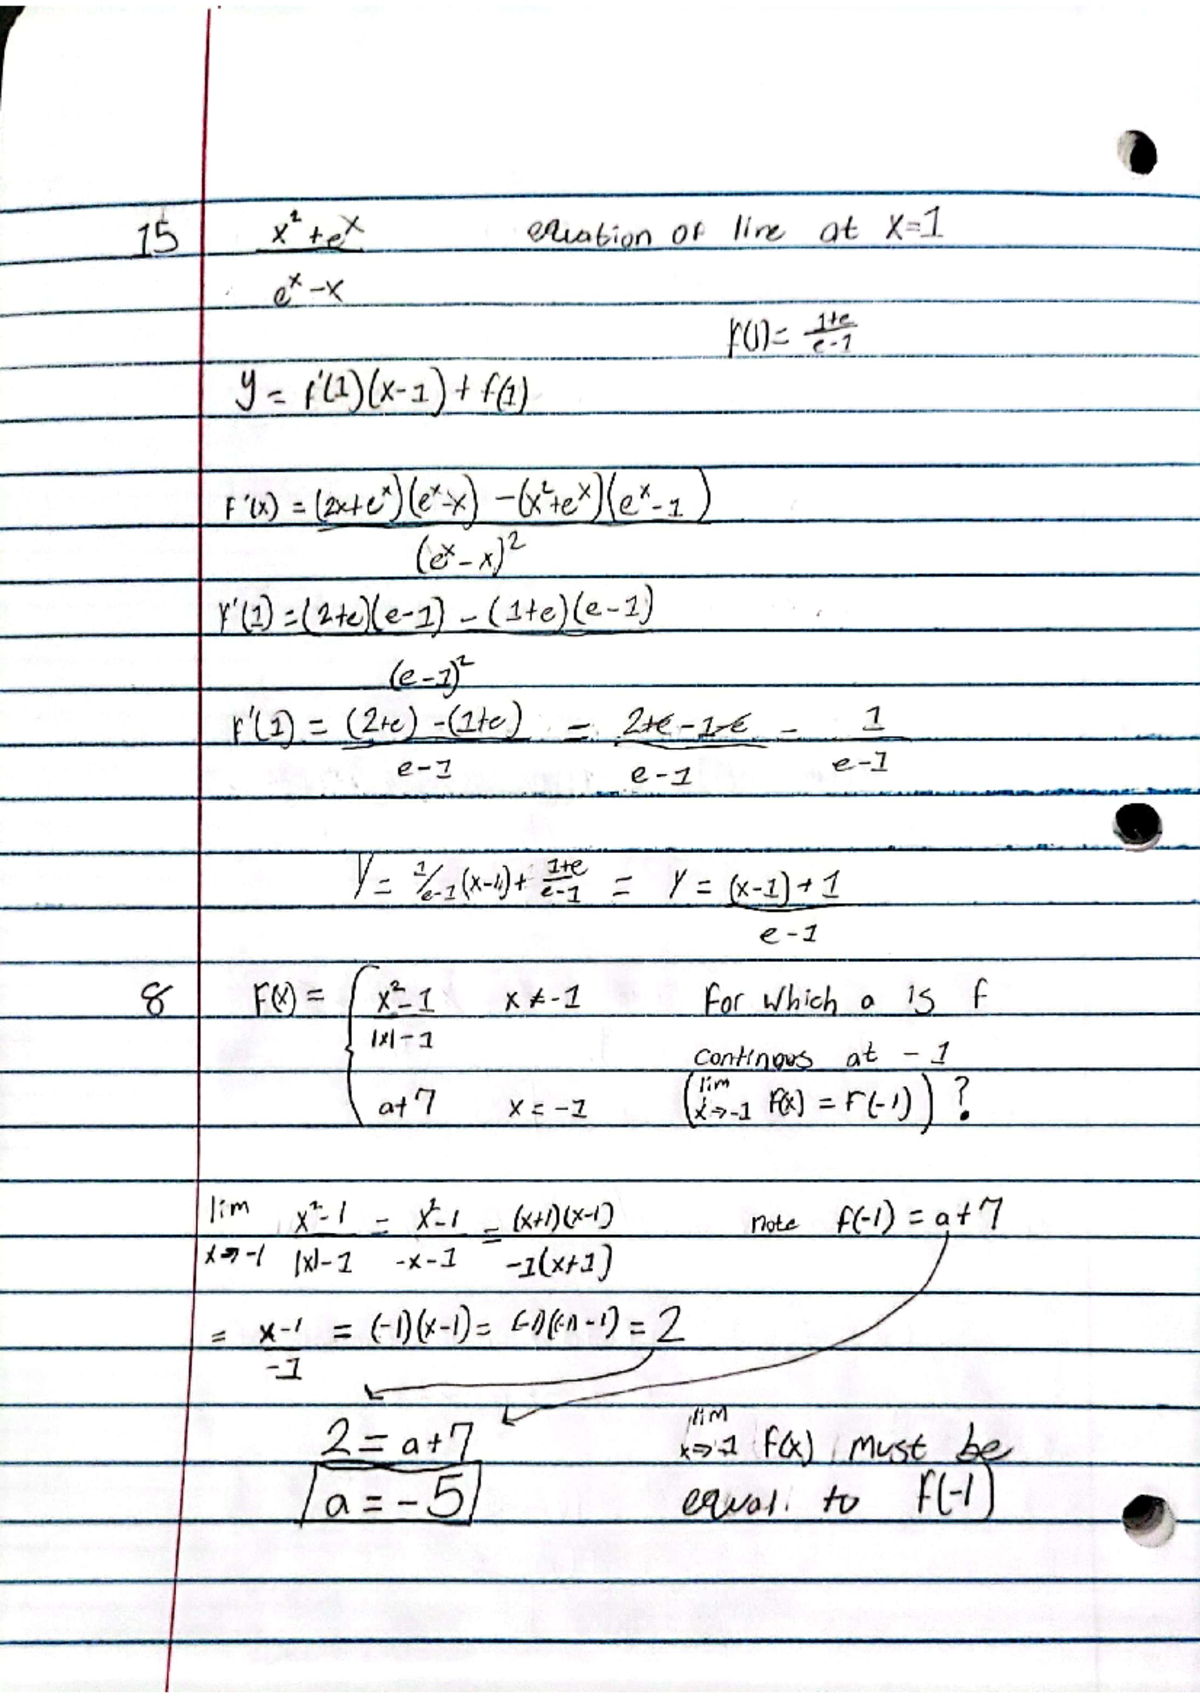 15 x²+e^x / e^x-x equation of line at x=1
f(1)= 1+e / e-1
y = f'(1)(x-1)+f(1)
F'(x) = (2x+e^x)(e^x-x) -(x²+e^x)(e^x-1) / (e^x-x)²
F'(1) = (2+e)(e-1) - (1+e)(e-1) / (e-1)²
F'(1) = (2+e) -(1+e) / e-1 = 2+e-1-e / e-1 = 1 / e-1
Y = 1/e-1 (x-1)+ 1+e / e-1 = Y = (x-1)+1 / e-1
8 F(x) = { x²-1 / |x|-1 x≠-1 For which a is f
continous at -1
a+7 x=-1 (lim x→-1 F(x) = F(-1)) ?
lim x→-1 x²-1 / |x|-1 = x²-1 / -x-1 = (x+1)(x-1) / -1(x+1) note f(-1) = a+7
= x-1 / -1 = (-1)(x-1) = (-1)((-1)-1) = 2
2 = a+7 lim x→-1 f(x) must be
a = -5 equal to f(-1)